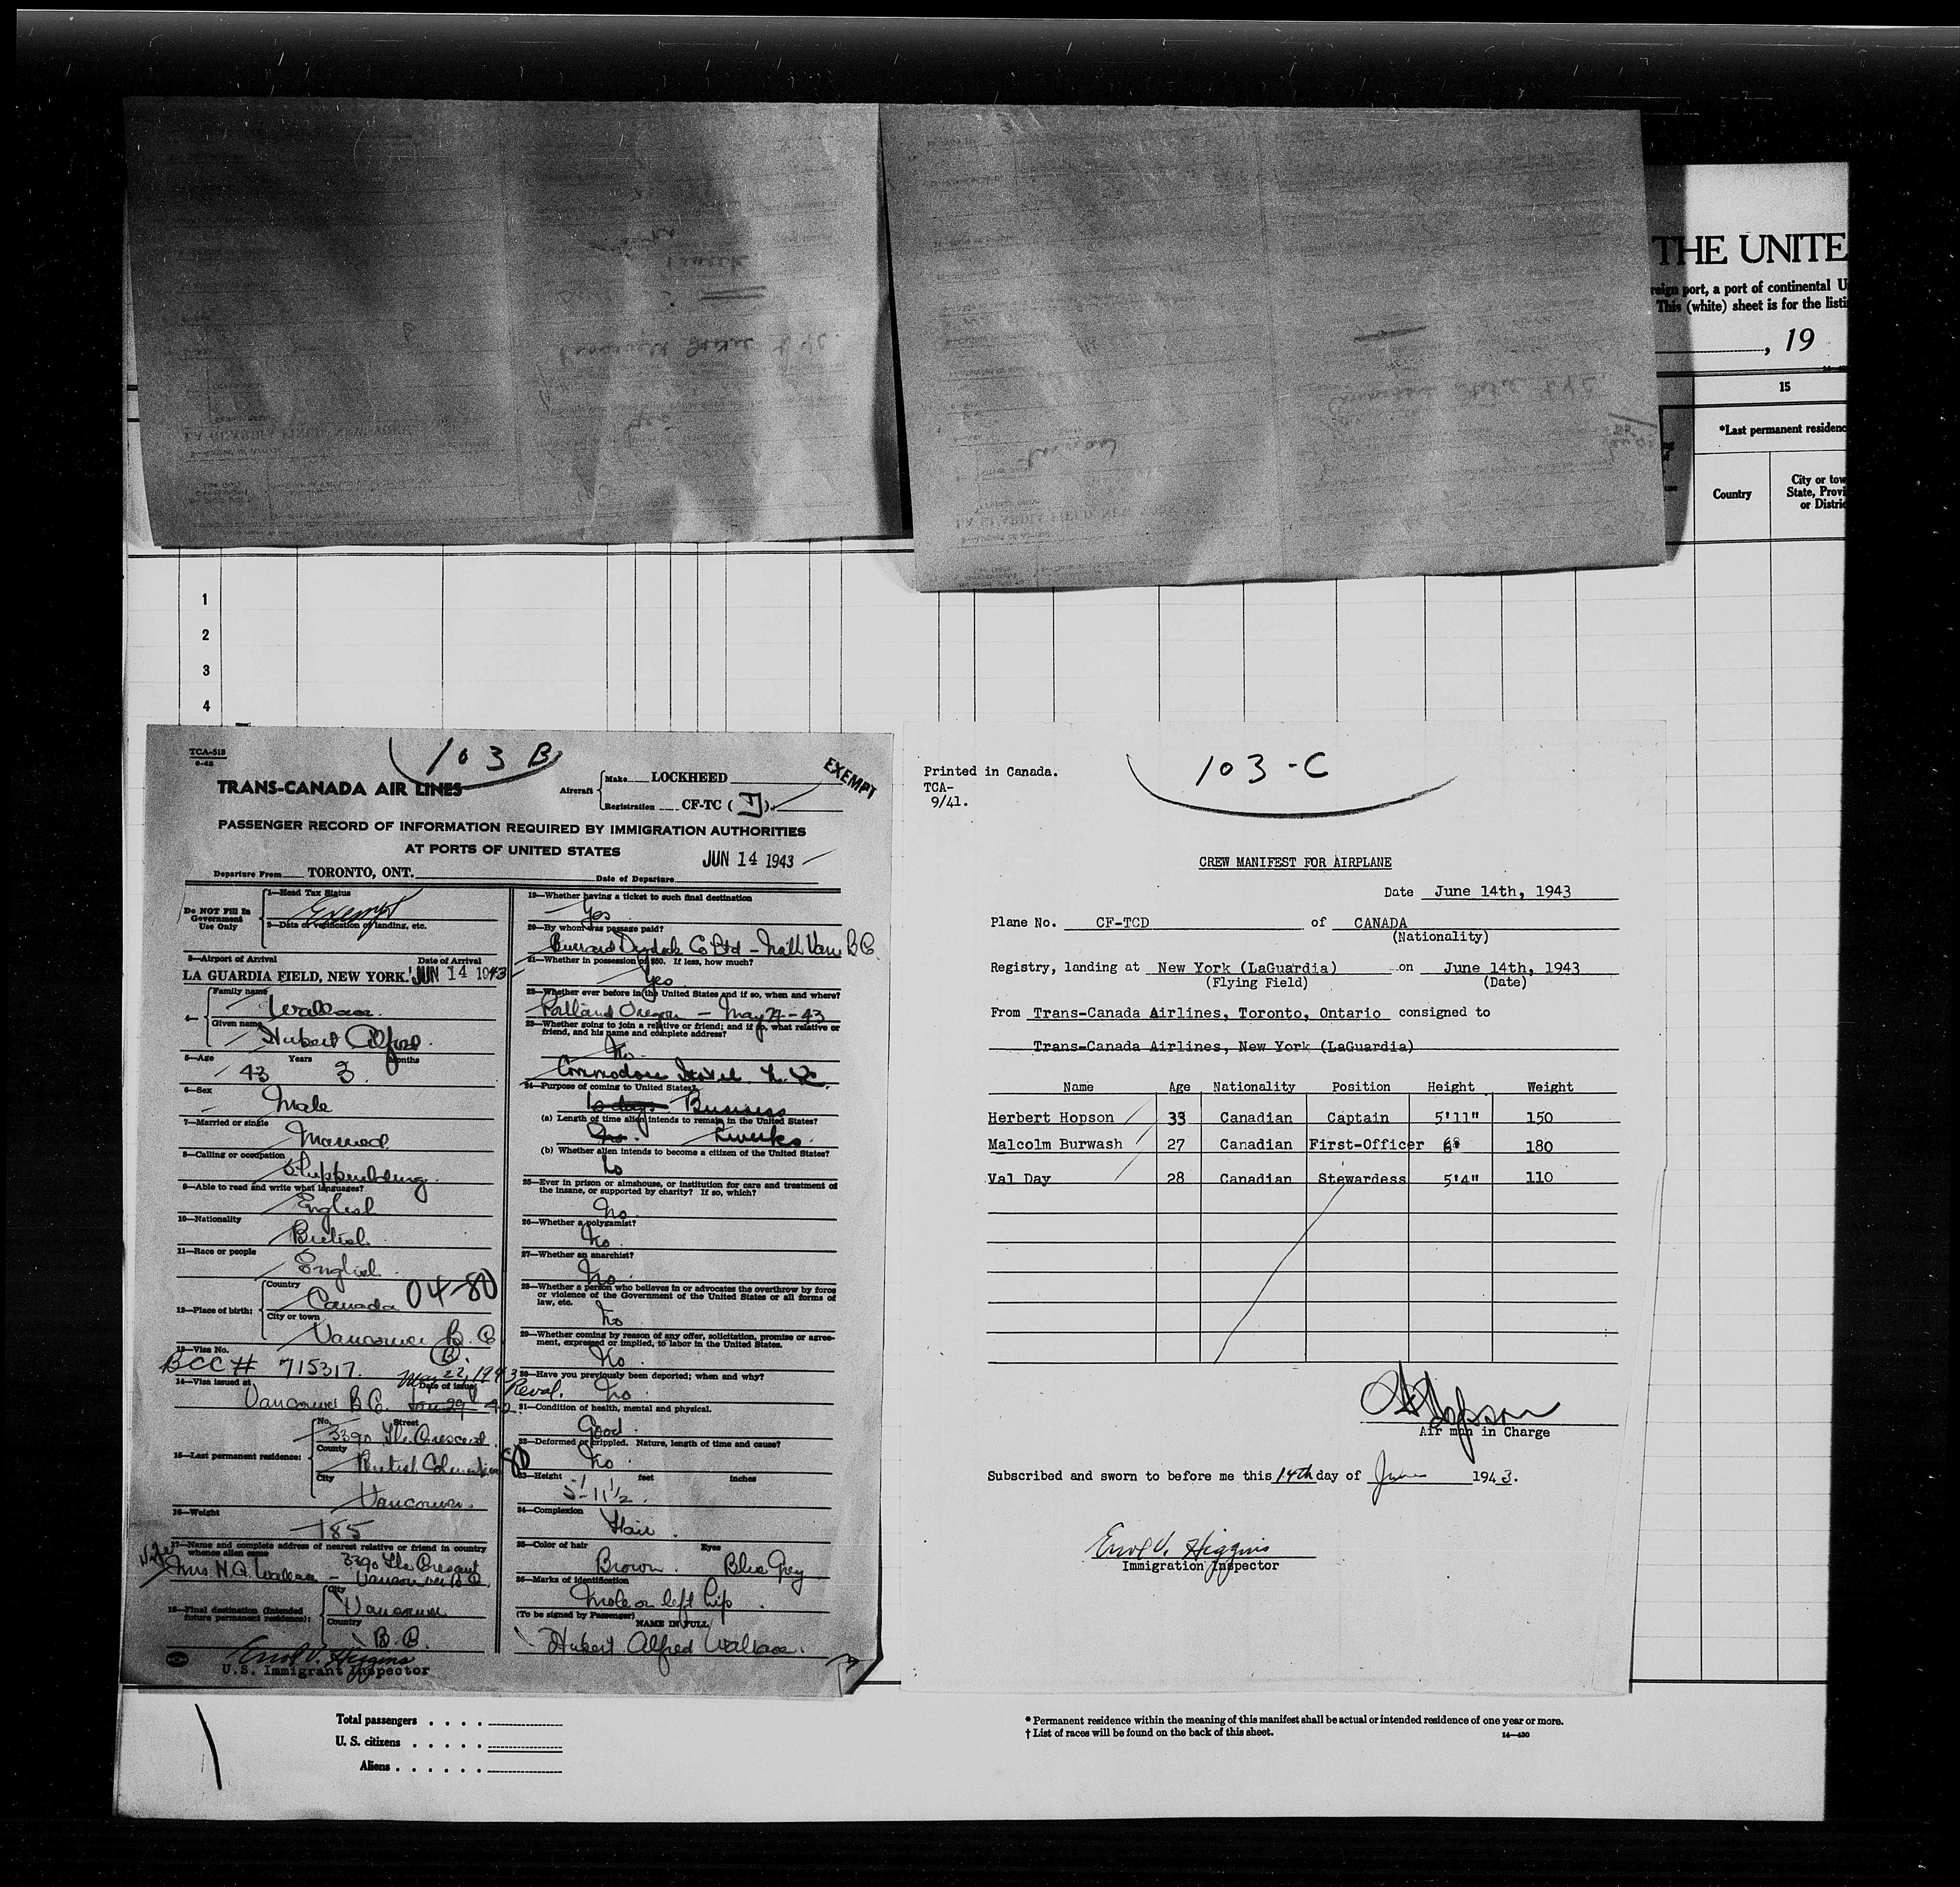 THE UNITE
reign port, a port of continental U
This (white) sheet is for the listi
, 19
15
*Last permanent residenc
Country
City or tow
State, Provi
or Distric
1
2
3
4
103 B
TCA-518
TRANS-CANADA AIR LINES
Aircraft
Make LOCKHEED
Registration CF-TC ( )
EXEMPT
PASSENGER RECORD OF INFORMATION REQUIRED BY IMMIGRATION AUTHORITIES
AT PORTS OF UNITED STATES
JUN 14 1943
Departure From TORONTO, ONT. Date of Departure
Do NOT Fill In
Government
Use Only
1—Head Tax Status
Exempt
2—Date of verification of landing, etc.
3—Airport of Arrival Date of Arrival
LA GUARDIA FIELD, NEW YORK. JUN 14 1943
4—
Family name
Wallace
Given name
Hubert Alfred
5—Age Years Months
43 3
6—Sex
Male
7—Married or single
Married
8—Calling or occupation
Shipbuilding
9—Able to read and write what languages?
English
10—Nationality
British
11—Race or people
English
12—Place of birth:
Country
Canada 04-80
City or town
Vancouver B.C.
B.
13—Visa No.
BCC # 715317. May 22, 1943
14—Visa issued at Date of issue
Vancouver B.C. Jan 29 - 42 Reval.
15—Last permanent residence:
No. Street
3390 The Crescent
County
British Columbia
City
Vancouver
16—Weight
185
17—Name and complete address of nearest relative or friend in country
whence alien came
Wife 3390 The Crescent
Mrs H.A. Wallace - Vancouver B.C.
18—Final destination (intended
future permanent residence):
City
Vancouver
Country
B.C.
Errol V. Higgins
U.S. Immigrant Inspector
19—Whether having a ticket to such final destination
Yes
20—By whom was passage paid?
Burrard Drydock Co Ltd - North Van B.C.
21—Whether in possession of $50. If less, how much?
Yes
22—Whether ever before in the United States and if so, when and where?
Portland Oregon - May - 43
23—Whether going to join a relative or friend; and if so, what relative or
friend, and his name and complete address?
No
Commodore Hotel N.Y.
24—Purpose of coming to United States?
10 days Business
(a) Length of time alien intends to remain in the United States?
No. 2 weeks
(b) Whether alien intends to become a citizen of the United States?
No
25—Ever in prison or almshouse, or institution for care and treatment of
the insane, or supported by charity? If so, which?
No
26—Whether a polygamist?
No
27—Whether an anarchist?
No
28—Whether a person who believes in or advocates the overthrow by force
or violence of the Government of the United States or all forms of
law, etc.
No
29—Whether coming by reason of any offer, solicitation, promise or agree-
ment, expressed or implied, to labor in the United States.
No
30—Have you previously been deported; when and why?
No
31—Condition of health, mental and physical.
Good
32—Deformed or crippled. Nature, length of time and cause?
No
33—Height feet inches
5'-11 1/2
34—Complexion
Fair
35—Color of hair Eyes
Brown Blue Grey
36—Marks of identification
Mole on left hip
(To be signed by Passenger)
NAME IN FULL
Hubert Alfred Wallace
103-C
Printed in Canada.
TCA-
9/41.
CREW MANIFEST FOR AIRPLANE
Date June 14th, 1943
Plane No. CF-TCD of CANADA
(Nationality)
Registry, landing at New York (LaGuardia) on June 14th, 1943
(Flying Field) (Date)
From Trans-Canada Airlines, Toronto, Ontario consigned to
Trans-Canada Airlines, New York (LaGuardia)
Name Age Nationality Position Height Weight
Herbert Hopson 33 Canadian Captain 5'11" 150
Malcolm Burwash 27 Canadian First-Officer 6' 180
Val Day 28 Canadian Stewardess 5'4" 110
H Hopson
Air man in Charge
Subscribed and sworn to before me this 14th day of June 1943.
Errol V. Higgins
Immigration Inspector
Total passengers . . . .
U. S. citizens . . . . .
Aliens . . . . . .
* Permanent residence within the meaning of this manifest shall be actual or intended residence of one year or more.
† List of races will be found on the back of this sheet.
14—430